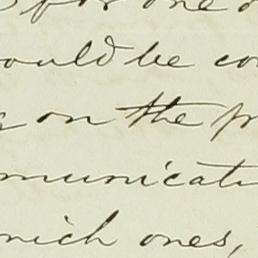 for one
ould be co
on the pr
municati
which ones,